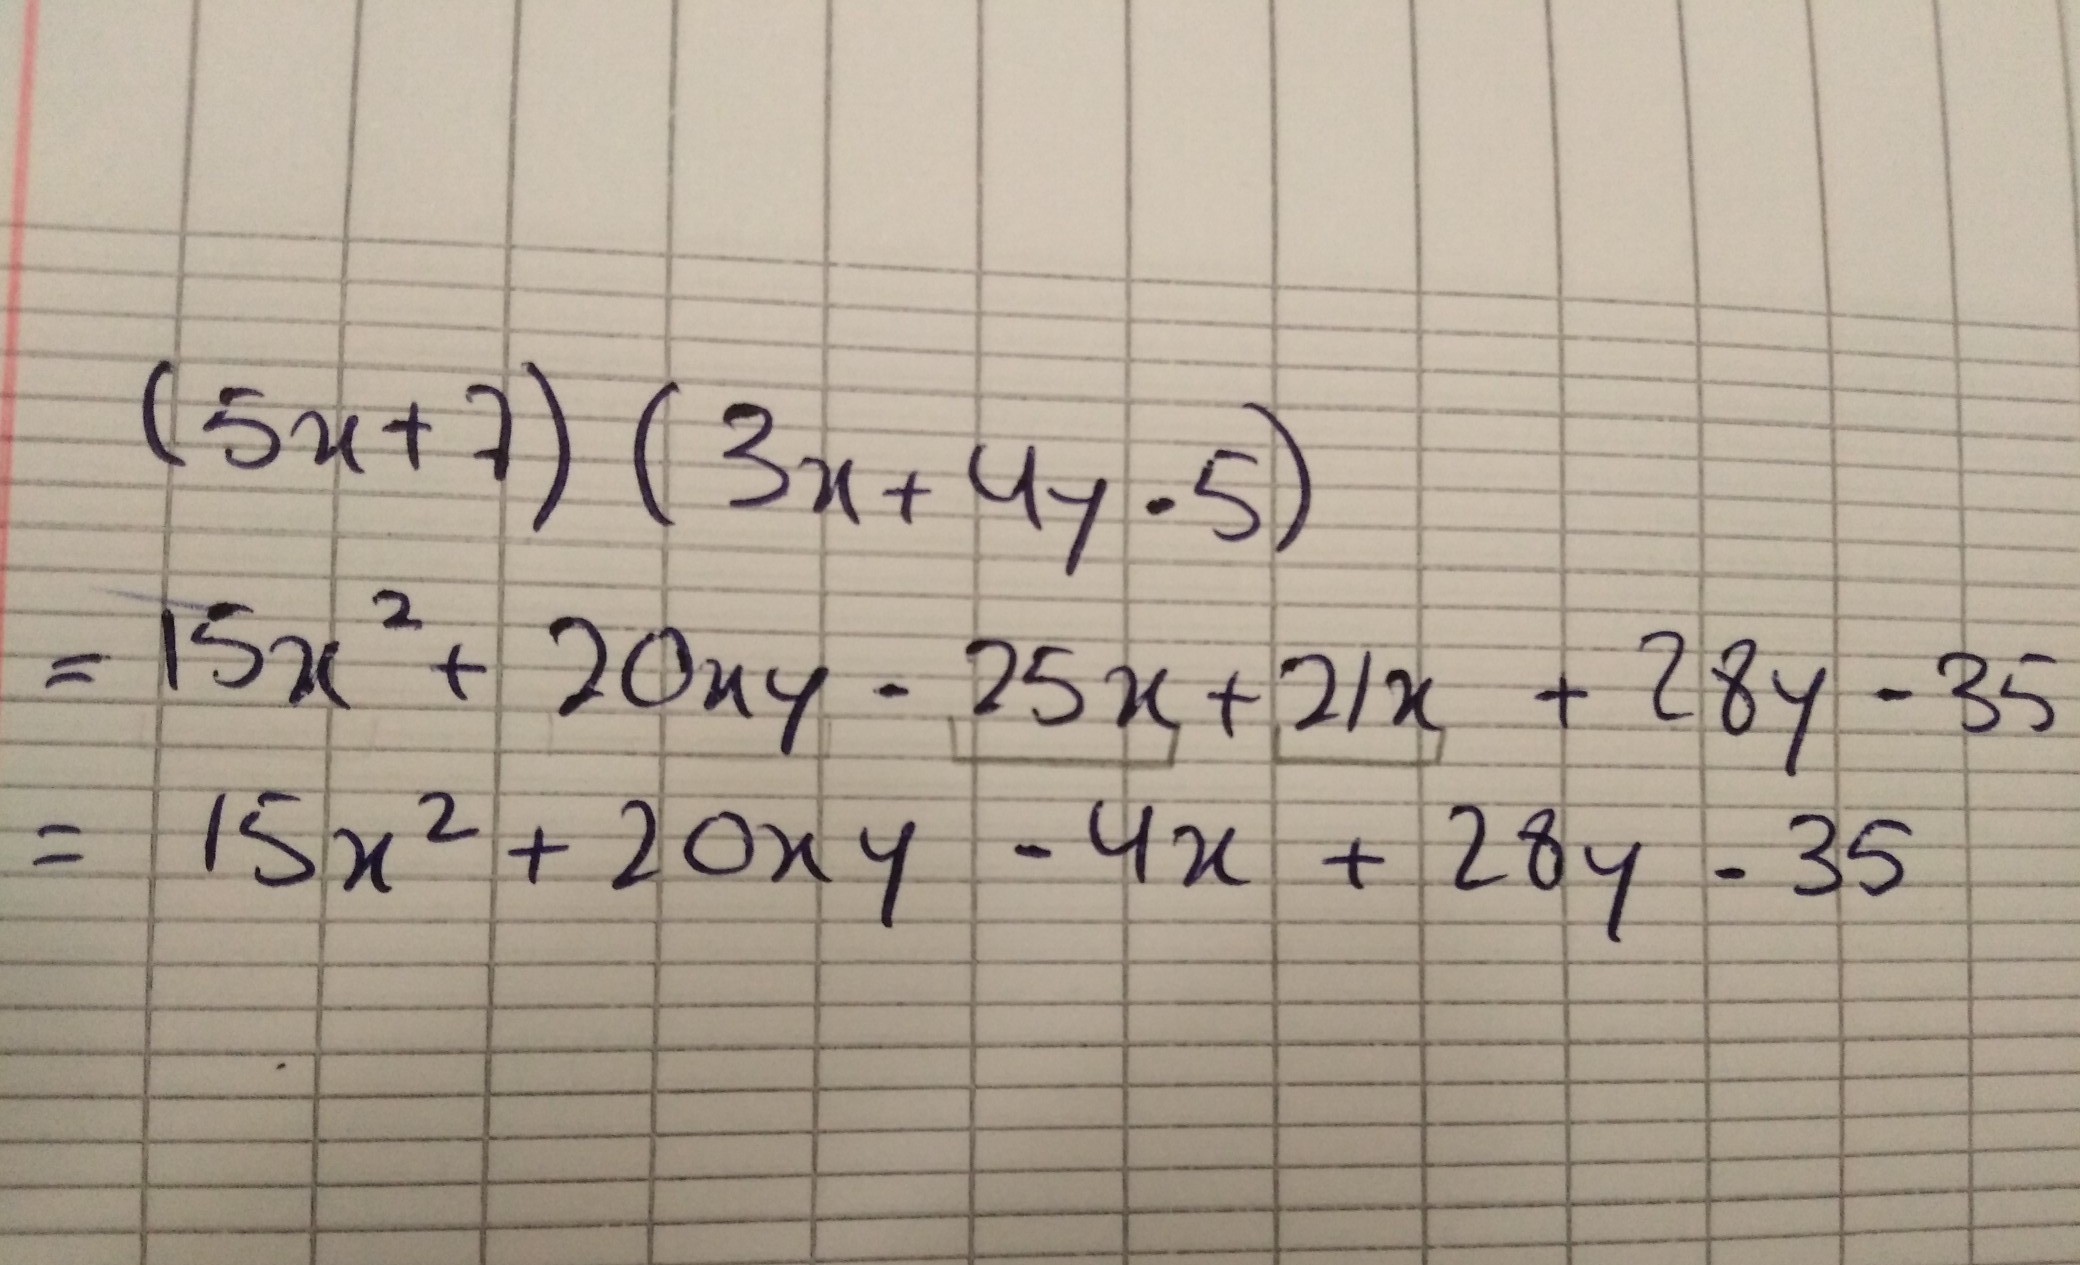 (5x+7) (3x+4y-5)
= 15x² + 20xy - 25x + 21x + 28y - 35
= 15x² + 20xy - 4x + 28y - 35